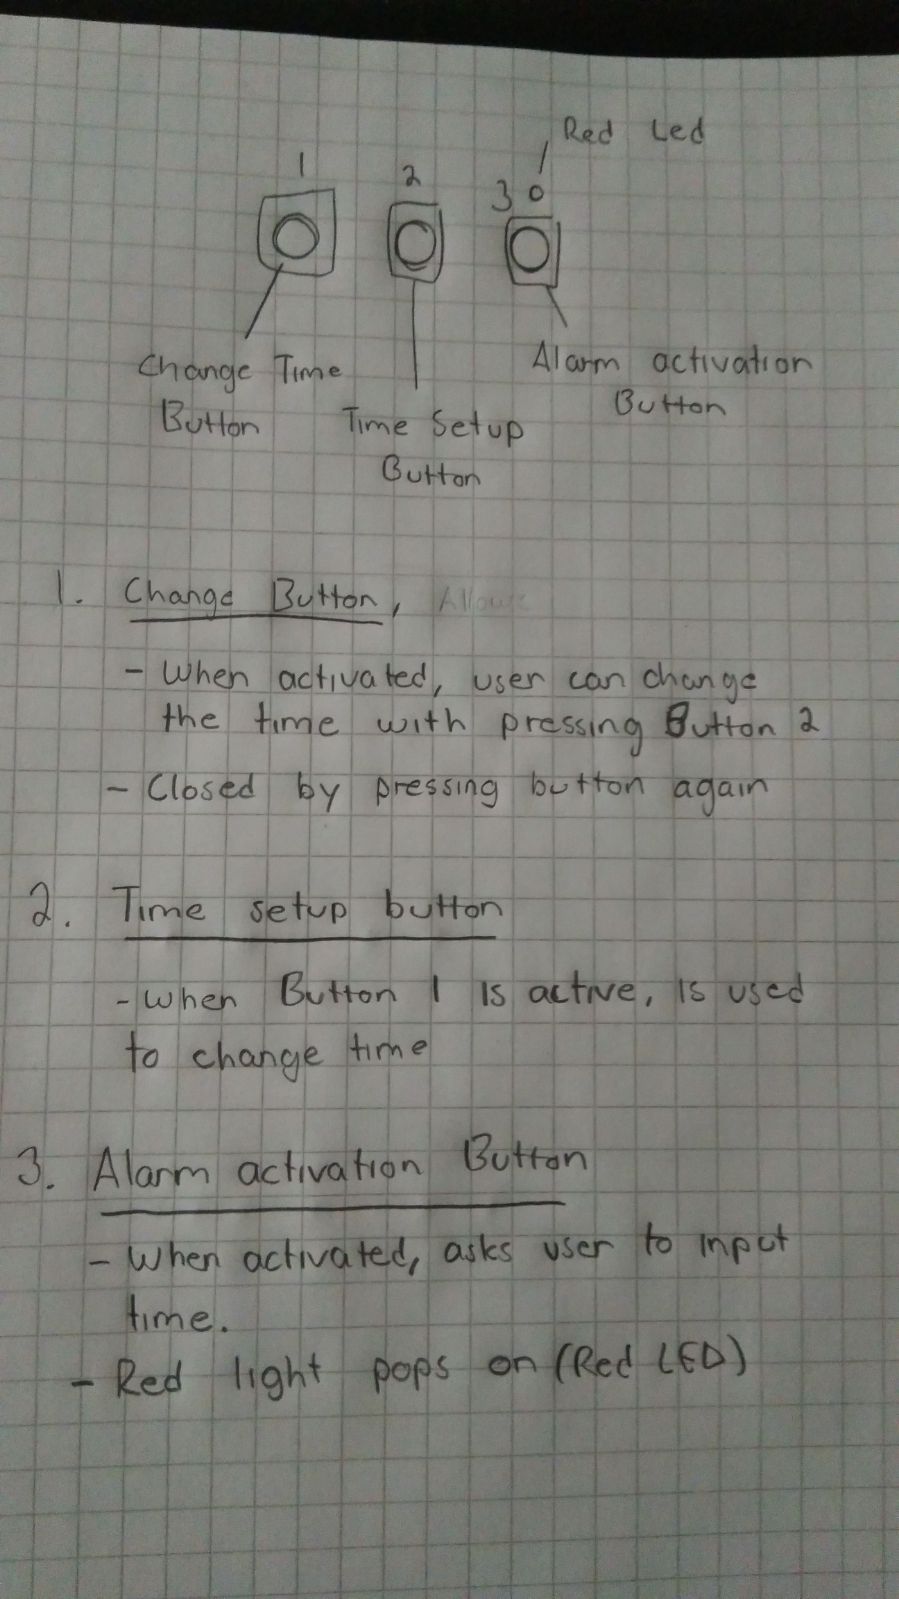 Red Led
1
2
3
Change Time
Button
Time Setup
Button
Alarm activation
Button
1. Change Button, Allows
- When activated, user can change
the time with pressing Button 2
- Closed by pressing button again
2. Time setup button
- when Button 1 is active, is used
to change time
3. Alarm activation Button
- When activated, asks user to input
time.
- Red light pops on (Red LED)